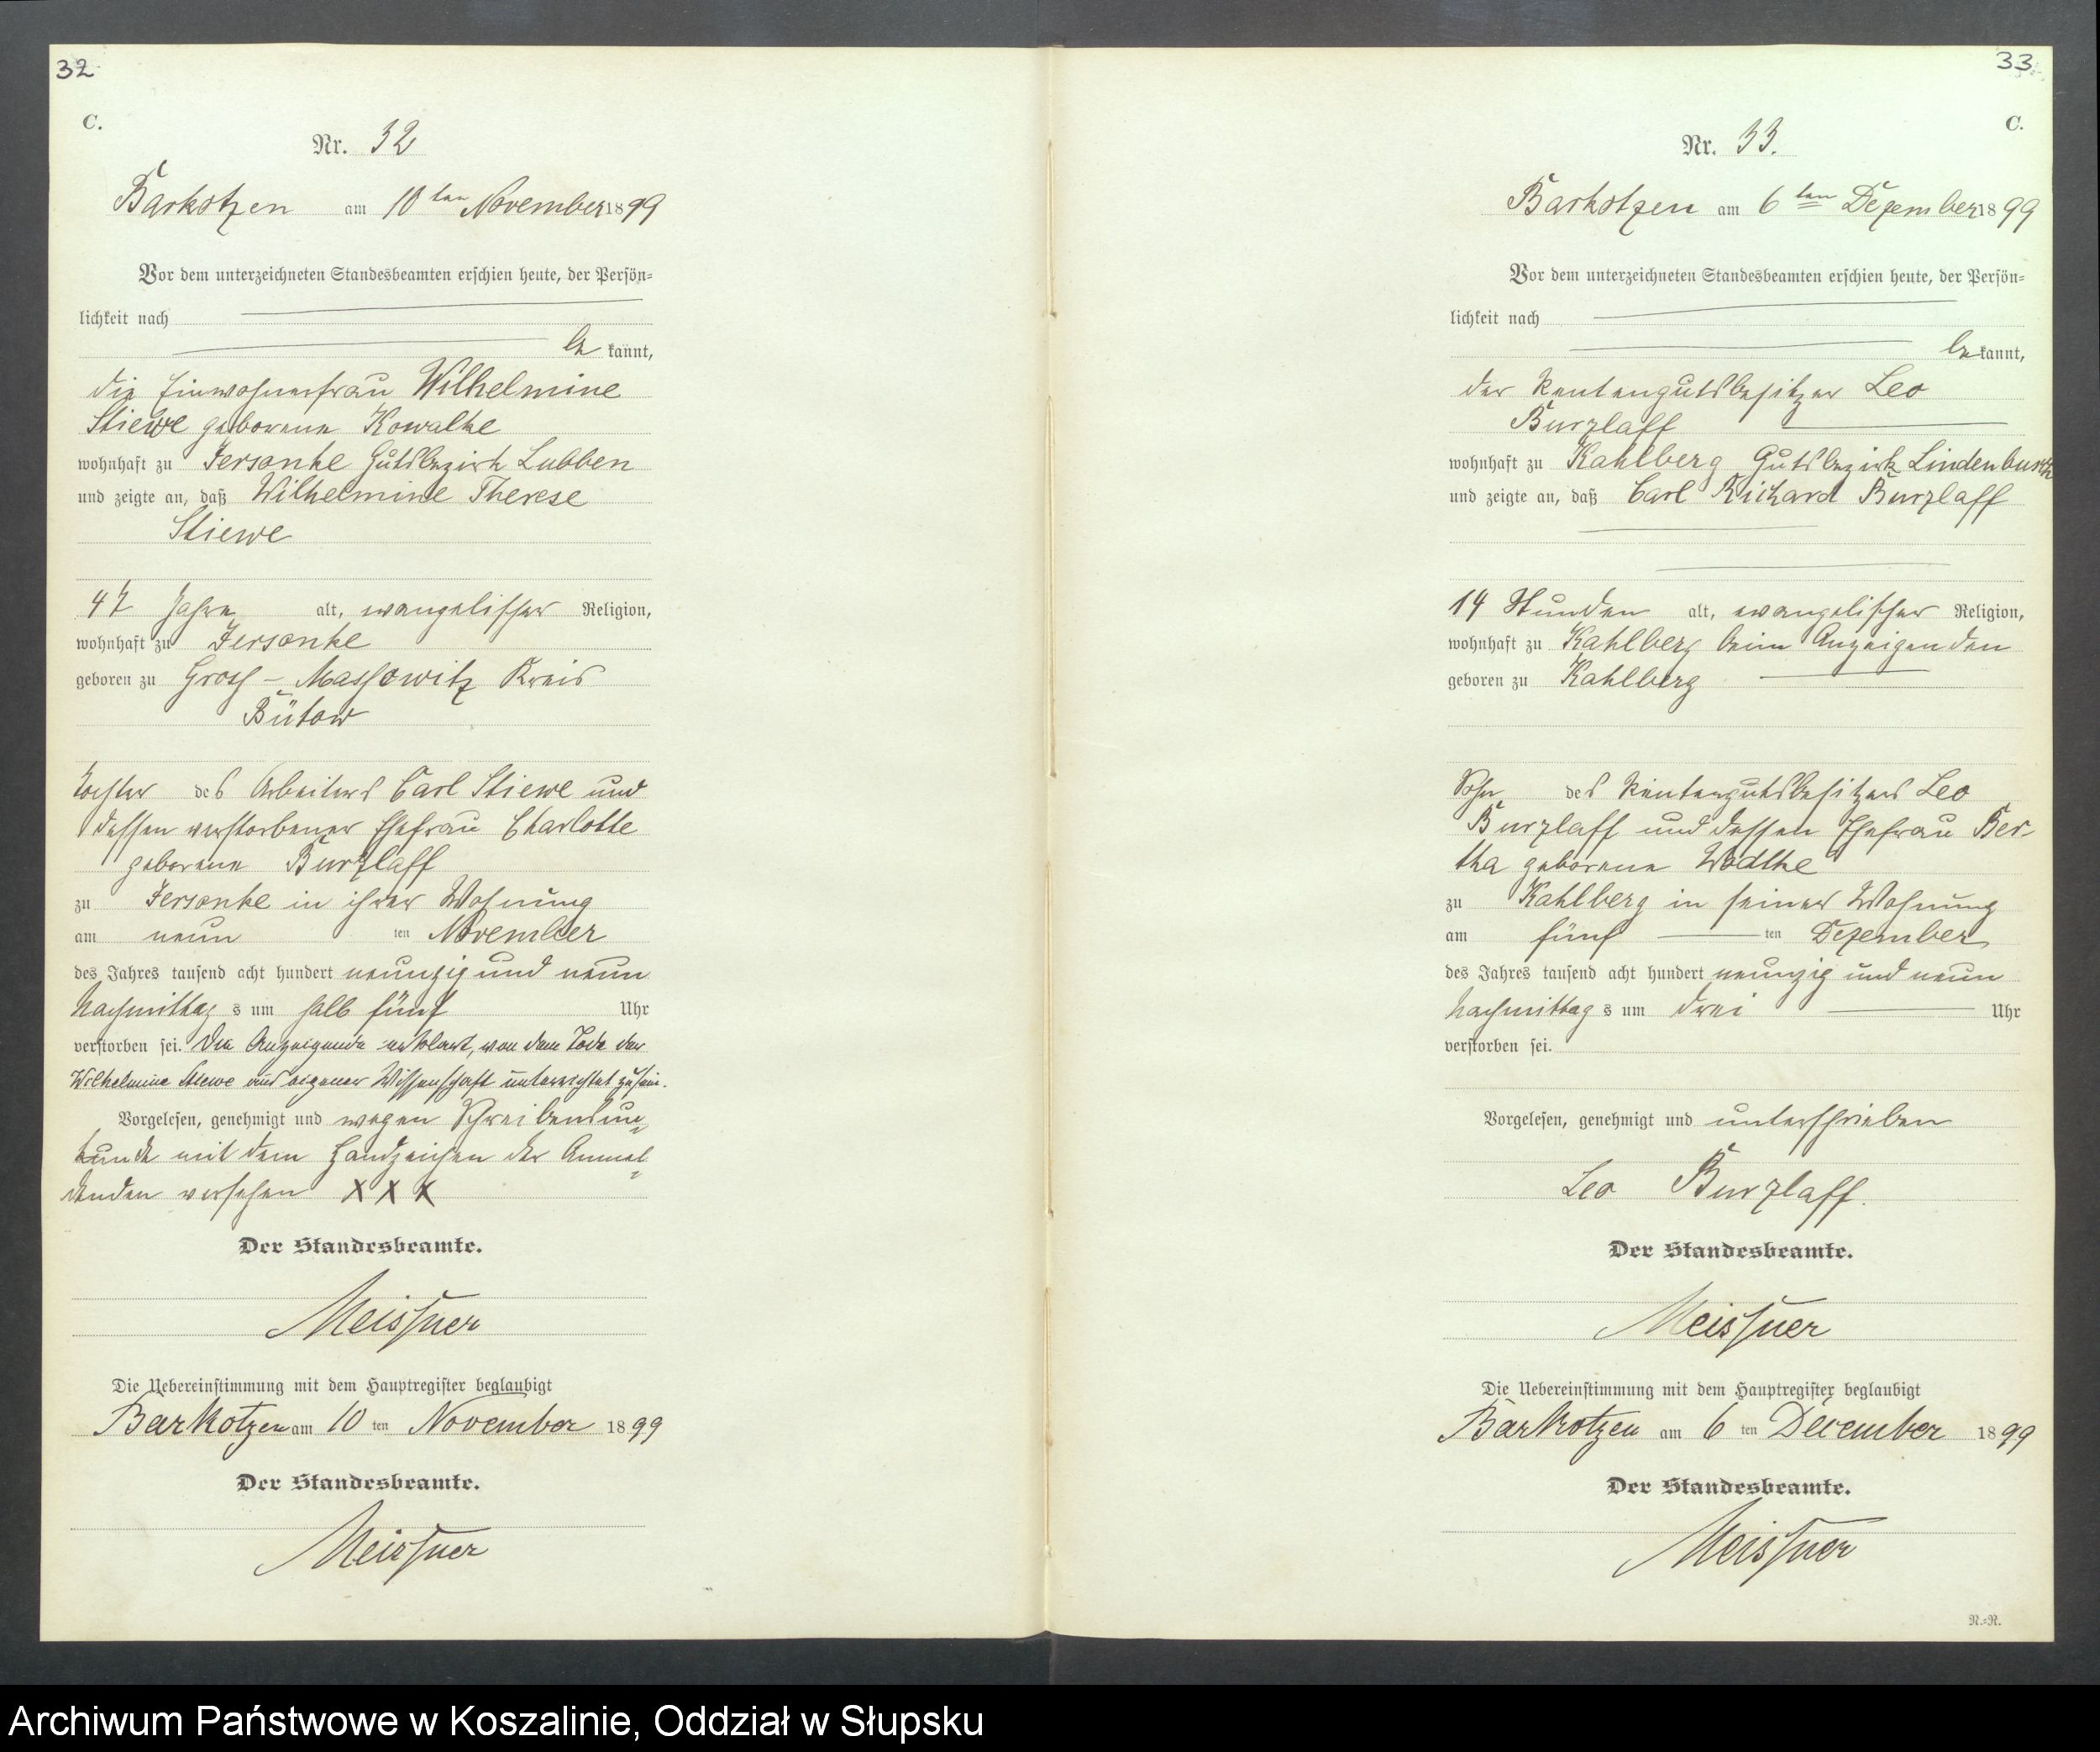 32
C.
Nr. 32
Barkotzen am 10 ten November 1899
Vor dem unterzeichneten Standesbeamten erschien heute, der Persön-
lichkeit nach
be kannt,
die Einwohnerfrau Wilhelmine
Stiewe geborene Kowalke
wohnhaft zu Jersonke Gutsbezirk Lubben
und zeigte an, daß Wilhelmine Therese
Stiewe
47 Jahre alt, evangelischer Religion,
wohnhaft zu Jersonke
geboren zu Gross-Massowitz Kreis
Bütow
Tochter des Arbeiters Carl Stiewe und
dessen verstorbener Ehefrau Charlotte
geborene Burzlaff
zu Jersonke in ihrer Wohnung
am neun ten November
des Jahres tausend acht hundert neunzig und neun
Nachmittag s um halb fünf Uhr
verstorben sei. Die Anzeigende erklärt, von dem Tode der
Wilhelmine Stiewe aus eigener Wissenschaft unterrichtet zu sein.
Vorgelesen, genehmigt und wegen Schreibensun-
kunde mit dem Handzeichen der Anmel-
denden versehen X X X
Der Standesbeamte.
Meissner
Die Uebereinstimmung mit dem Hauptregister beglaubigt
Barkotzen am 10 ten November 1899
Der Standesbeamte.
Meissner
33
C.
Nr. 33.
Barkotzen am 6 ten Dezember 1899
Vor dem unterzeichneten Standesbeamten erschien heute, der Persön-
lichkeit nach
be kannt,
der Rentengutsbesitzer Leo
Burzlaff
wohnhaft zu Kahlberg Gutsbezirk Lindenbusch
und zeigte an, daß Carl Richard Burzlaff
14 Stunden alt, evangelischer Religion,
wohnhaft zu Kahlberg beim Anzeigenden
geboren zu Kahlberg
Sohn des Rentengutsbesitzers Leo
Burzlaff und dessen Ehefrau Ber-
tha geborene Wodtke
zu Kahlberg in seiner Wohnung
am fünf ten Dezember
des Jahres tausend acht hundert neunzig und neun
Nachmittag s um drei Uhr
verstorben sei.
Vorgelesen, genehmigt und unterschrieben
Leo Burzlaff.
Der Standesbeamte.
Meissner
Die Uebereinstimmung mit dem Hauptregister beglaubigt
Barkotzen am 6 ten December 1899
Der Standesbeamte.
Meissner
N.=R.
Archiwum Państwowe w Koszalinie, Oddział w Słupsku